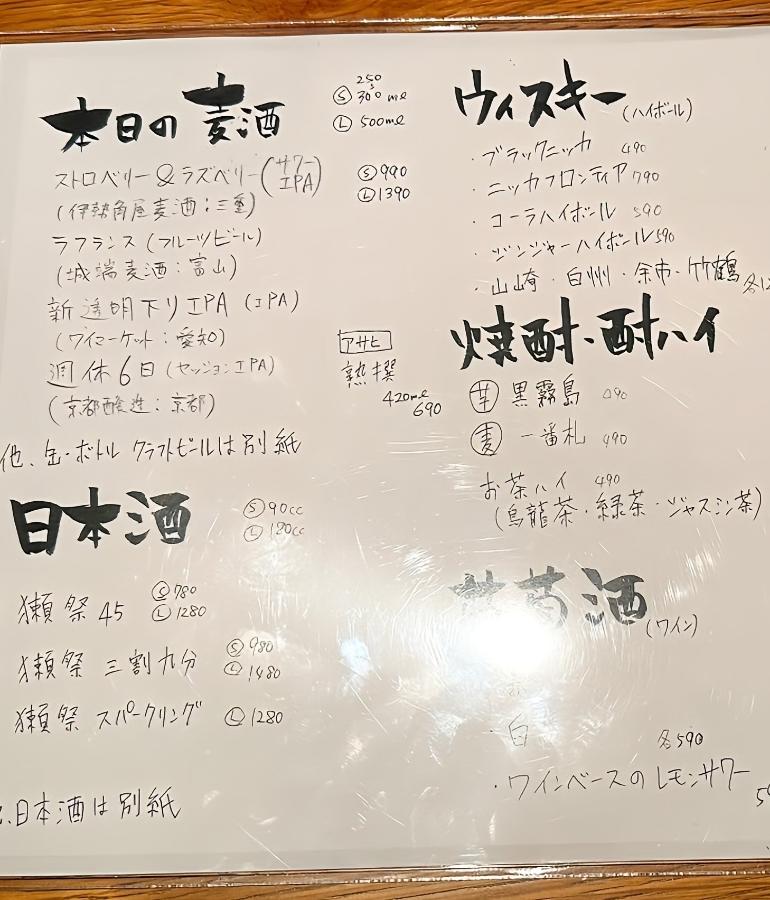 本日の麦酒
250
〜
Ⓢ 300ml
Ⓛ 500ml
ストロベリー&ラズベリー(サワーIPA)
Ⓢ990
Ⓛ1390
(伊勢角屋麦酒:三重)
ラフランス(フルーツビール)
(城端麦酒:富山)
新透明下りIPA(IPA)
(ワイマーケット:愛知)
週休6日(セッションIPA)
(京都醸造:京都)
アサヒ
熟撰
420ml
690
他、缶・ボトル クラフトビールは別紙
日本酒
Ⓢ90cc
Ⓛ180cc
獺祭 45
Ⓢ780
Ⓛ1280
獺祭 三割九分
Ⓢ980
Ⓛ1480
獺祭 スパークリング Ⓛ1280
日本酒は別紙
ウィスキー(ハイボール)
・ブラックニッカ 490
・ニッカフロンティア 790
・コーラハイボール 590
・ジンジャーハイボール 590
・山崎・白州・余市・竹鶴
焼酎・酎ハイ
㊉芋 黒霧島 490
麦 一番札 490
お茶ハイ 490
(烏龍茶・緑茶・ジャスミン茶)
葡萄酒(ワイン)
・白 各590
・ワインベースのレモンサワー